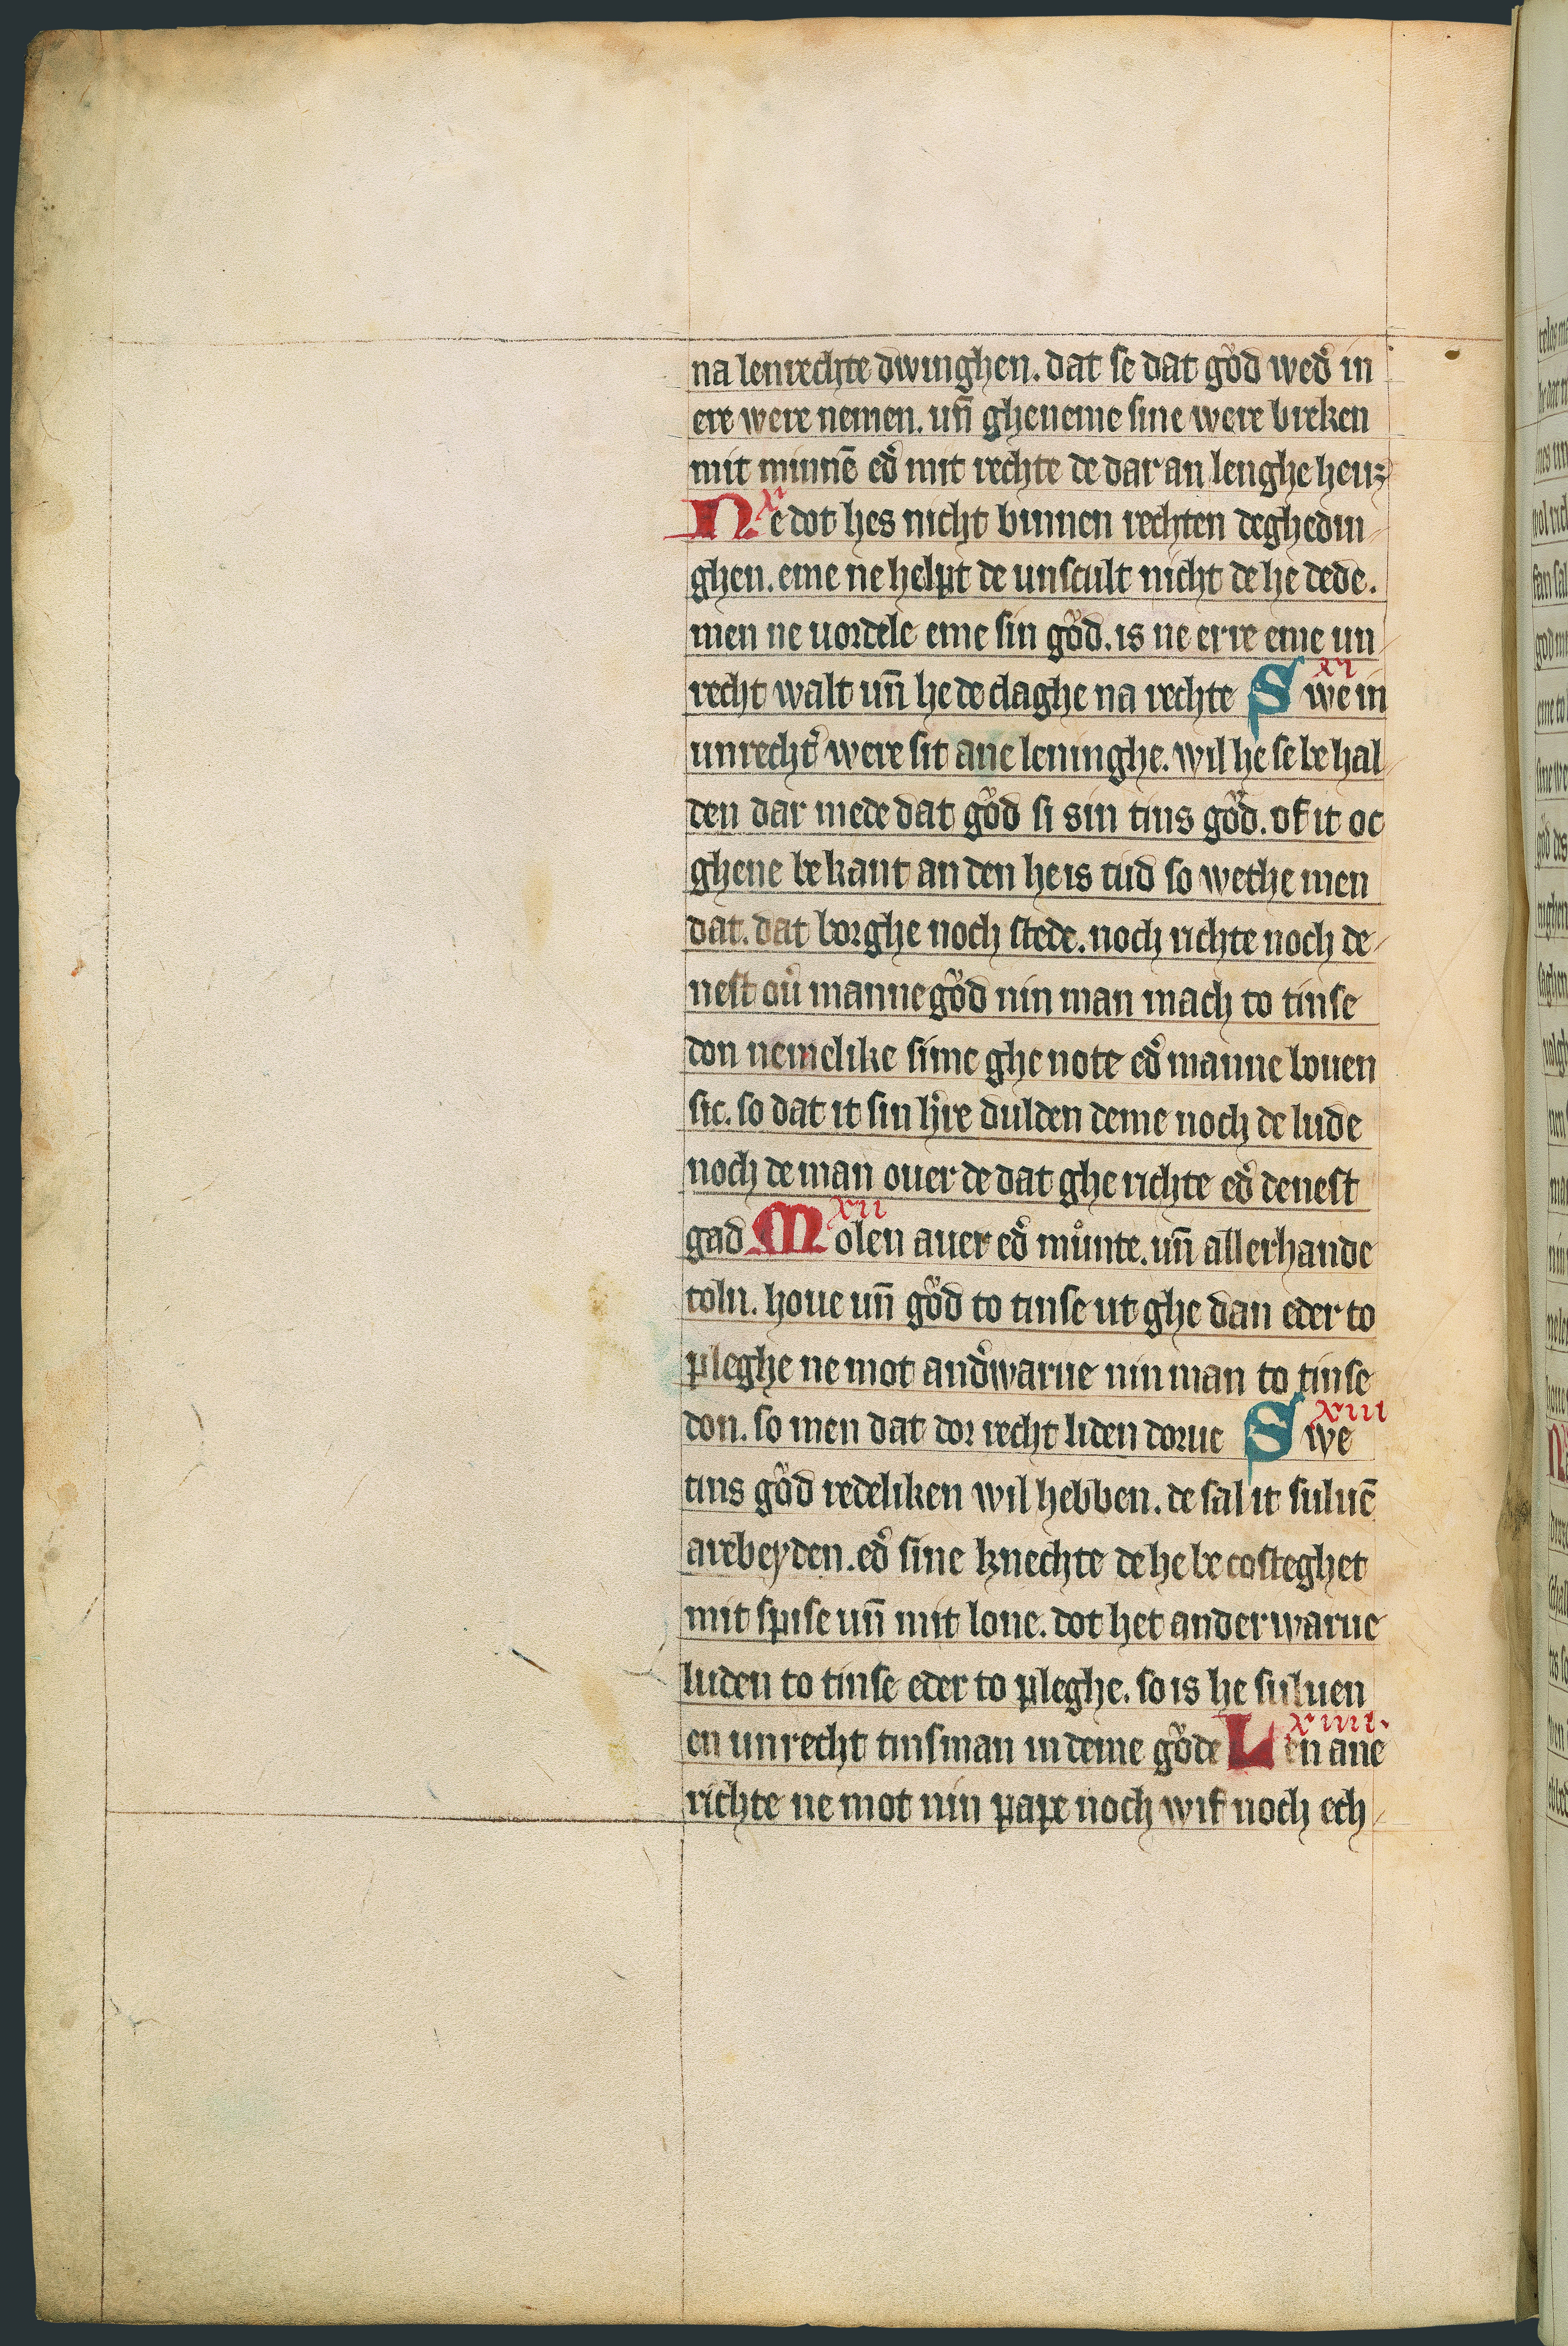 na lenrechte dwinghen. dat se dat gůd wed᷎ in
ere were nemen. un̄ gheneme sine were breken
mit minnē ed᷎ mit rechte de dar an lenghe heuꝫ
xi
Ne dot hes nicht binnen rechten deghedin
ghen. eme ne helpt de unscult nicht de he dede.
men ne uordele eme sin gůd. is ne erre eme un
xi
recht walt un̄ he de claghe na rechte Swe in
unrecht᷎ were sit ane leninghe. wil he se be hal
den dar mede dat gůd si sin tins gůd. of it oc
ghene be kant an den he is tud so wethe men
dat. dat borghe noch stede. noch richte noch de
nest ou᷎ manne gůd nin man mach to tinse
don nemelike sime ghe note ed᷎ manne louen
sic. so dat it sin h᷎re dulden deme noch de lude
noch de man ouer de dat ghe richte ed᷎ denest
xii
gad Molen auer ed᷎ můnte. un̄ allerhande
toln. houe un̄ gůd to tinse ut ghe dan eder to
pleghe ne mot and᷎warue nin man to tinse
xiii
don. so men dat dor recht liden dorue Swe
tins gůd redeliken wil hebben. de sal it suluē
arebeyden. ed᷎ sine knechte de he be costeghet
mit spise un̄ mit lone. dot het anderwarue
luden to tinse eder to pleghe. so is he suluen
xiiii.
en unrecht tinsman in deme gůde Len ane
richte ne mot nin pape noch wif noch ech